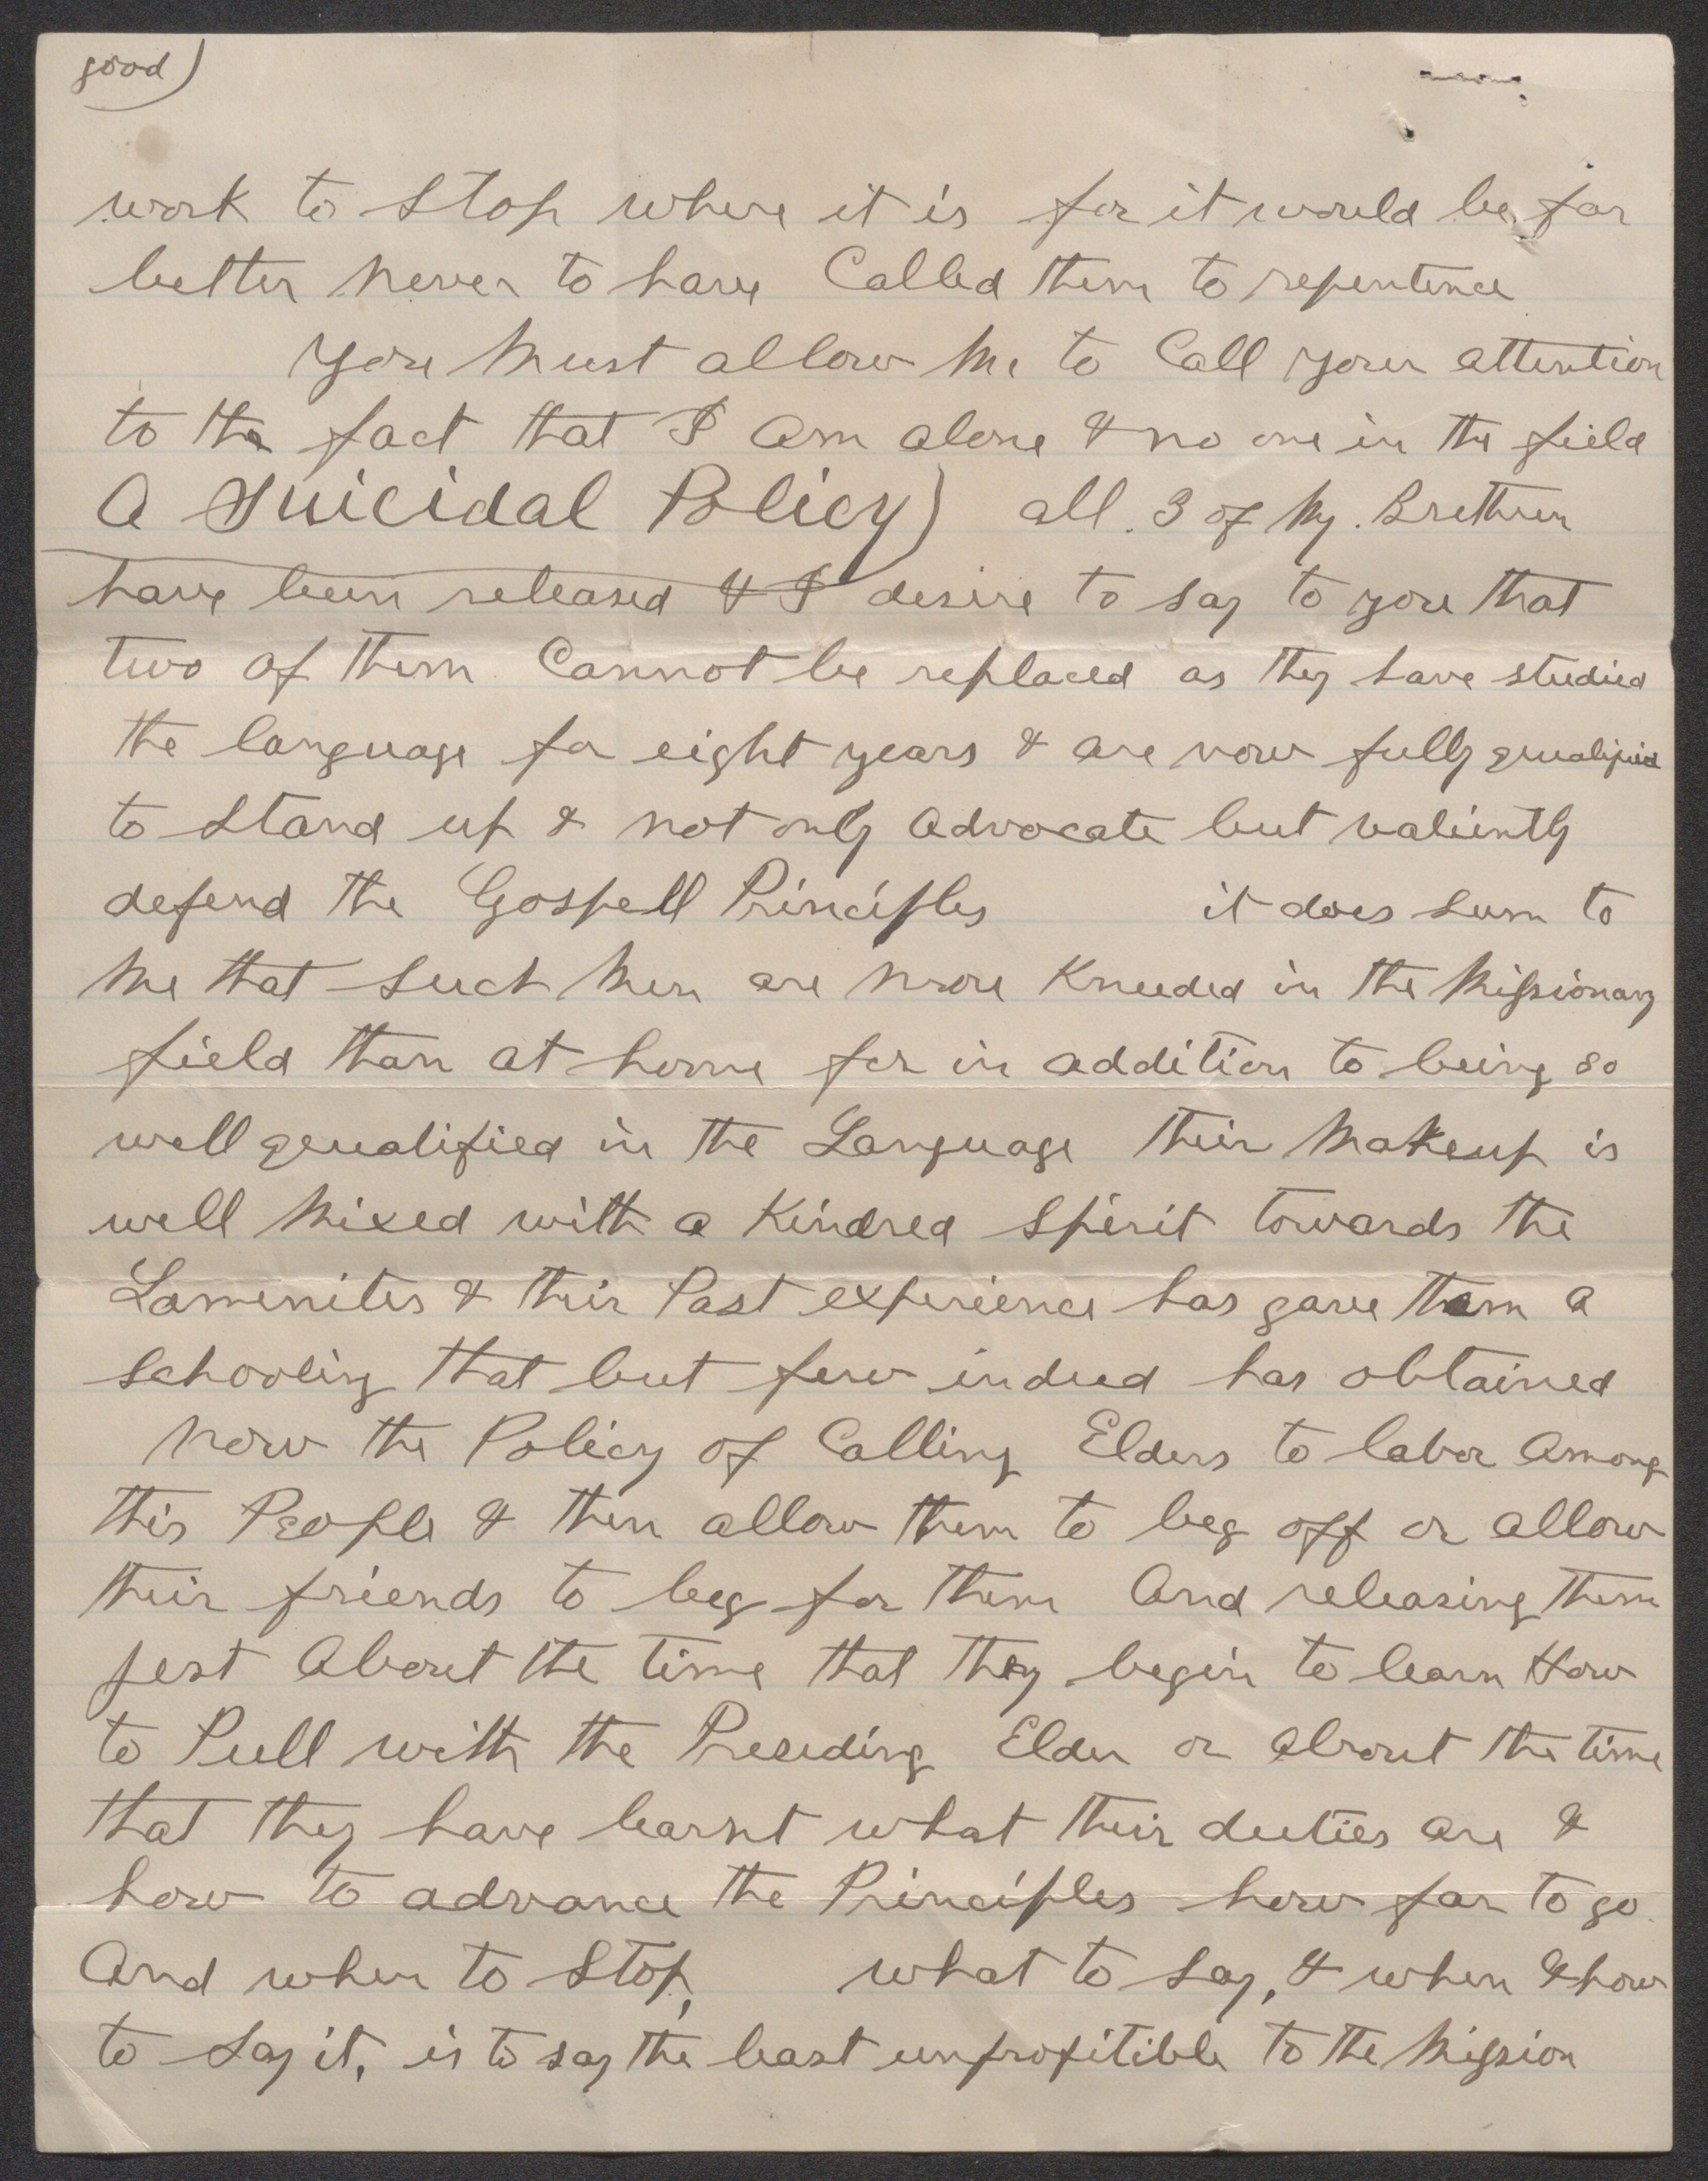 good)
work to stop where it is for it would be far
better never to have Called them to repentence
You Must allow Me to Call your attention
to the fact that I am alone & no one in the field
A Suicidal Policy) all 3 of My Brethren
have been released & I desire to say to you that
two of them Cannot be replaced as they have studied
the language for eight years & are now fully qualified
to stand up & not only advocate but valiently
defend the Gospell Principles it does seem to
Me that such Men are More Kneeded in the Missionary
field than at home for in addition to being so
well qualified in the Language their Makeup is
well Mixed with a Kindred Spirit towards the
Lamenites & their Past experience has gave them a
schooling that but few indeed has obtained
Now the Policy of Calling Elders to labor Among
this People & then allow them to beg off or allow
their friends to beg for them And releasing them
jest About the time that they begin to learn How
to Pull with the Preseding Elder or about the time
that they have learnt what their duties are &
how to advance the Principles how far to go
And when to stop, what to say, & when & how
to say it, is to say the least unprofitible to the Mission